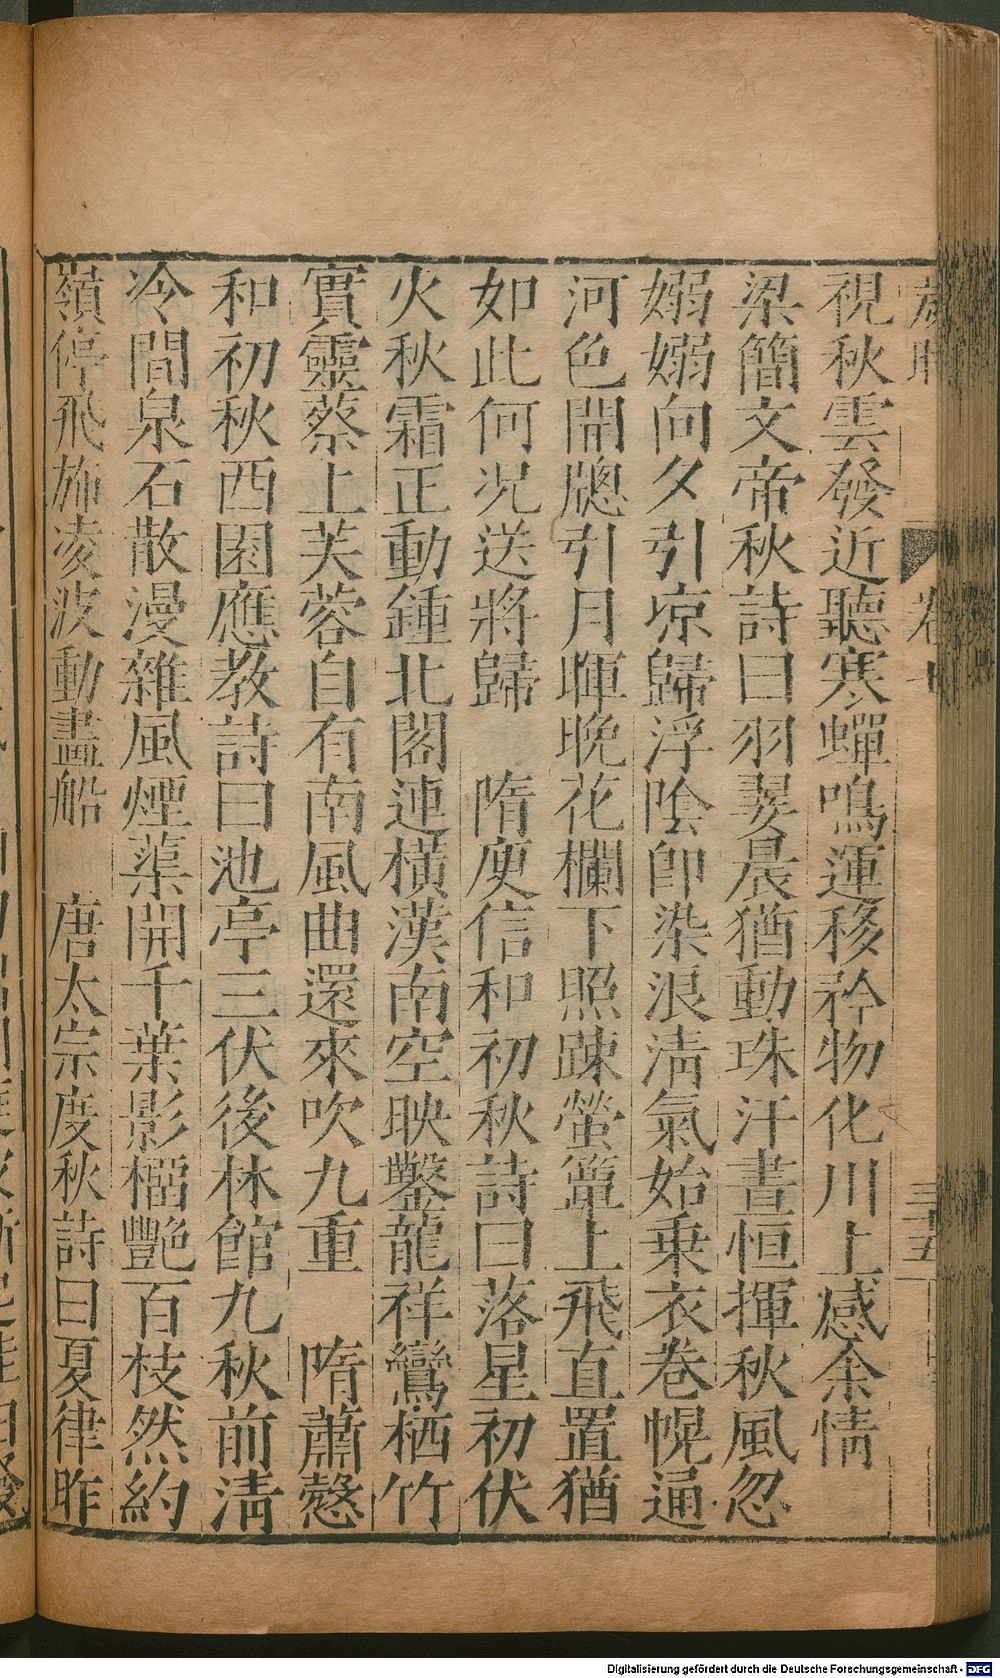 視秋雲發近聽寒蟬鳴運移矜物化川上感余情
梁簡文帝秋詩曰羽翣晨猶動珠汗晝恒揮秋風忽
嫋嫋向夕引凉歸浮陰即染浪淸氣始乗衣卷幌通
河色開牎引月暉晚花欄下照踈螢簟上飛直置猶
如此何況送將歸　隋庾信和初秋詩曰落星初伏
火秋霜正動鍾北閣連橫漢南空映鑿龍祥鸞栖竹
實靈蔡上芙蓉自有南風曲還來吹九重　隋蕭愨
和初秋西園應教詩曰池亭三伏後林館九秋前淸
冷間泉石散漫雜風煙蕖開千葉影榴艷百枝然約
嶺停飛斾凌波動畫船　唐太宗度秋詩曰夏律昨
歲時
卷
三十五
Digitalisierung gefördert durch die Deutsche Forschungsgemeinschaft - DFG